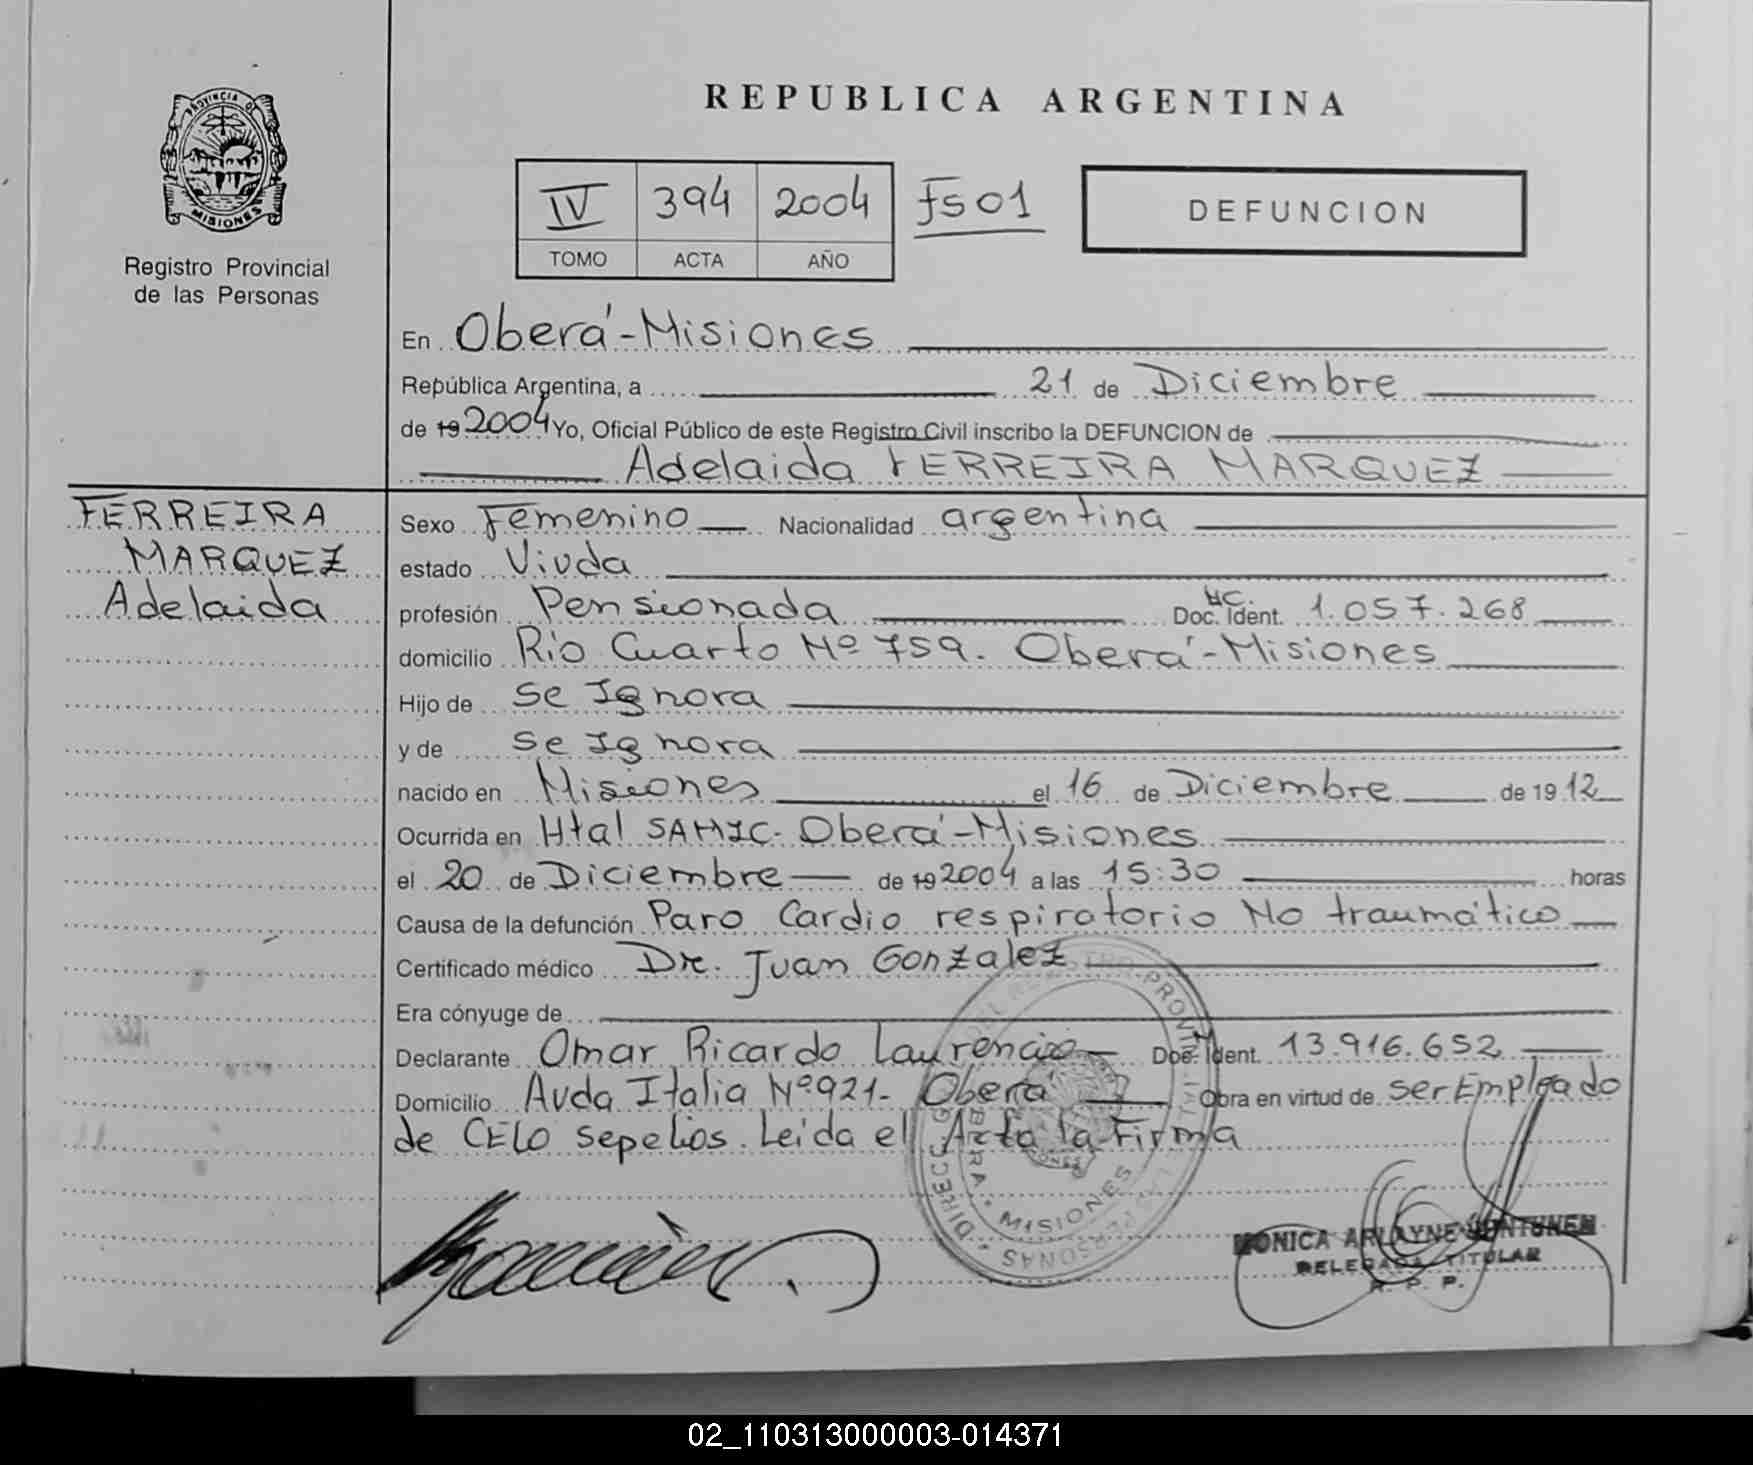 PROVINCIA DE
MISIONES
Registro Provincial
de las Personas
REPUBLICA ARGENTINA
IV 394 2004 Fs 01
TOMO ACTA AÑO
DEFUNCION
En Oberá-Misiones
República Argentina, a 21 de Diciembre
de 19 2004 Yo, Oficial Público de este Registro Civil inscribo la DEFUNCION de
Adelaida FERREIRA MARQUEZ
FERREIRA
MARQUEZ
Adelaida
Sexo Femenino Nacionalidad argentina
estado Viuda
profesión Pensionada Doc. Ident. 1.057.268
domicilio Rio Cuarto Nº 759. Oberá-Misiones
Hijo de Se Ignora
y de Se Ignora
nacido en Misiones el 16 de Diciembre de 19 12
Ocurrida en Htal SAMIC. Oberá-Misiones
el 20 de Diciembre de 19 2004 a las 15:30 horas
Causa de la defunción Paro Cardio respiratorio No traumático
Certificado médico Dr. Juan Gonzalez
Era cónyuge de
Declarante Omar Ricardo Laurencio Doc. Ident. 13.916.652
Domicilio Avda Italia Nº 921- Oberá Obra en virtud de ser Empleado
de CELO Sepelios. Leida el Acta la Firma
MISIONES
MONICA
DELEGADA TITULAR
R. P. P.
02_110313000003-014371